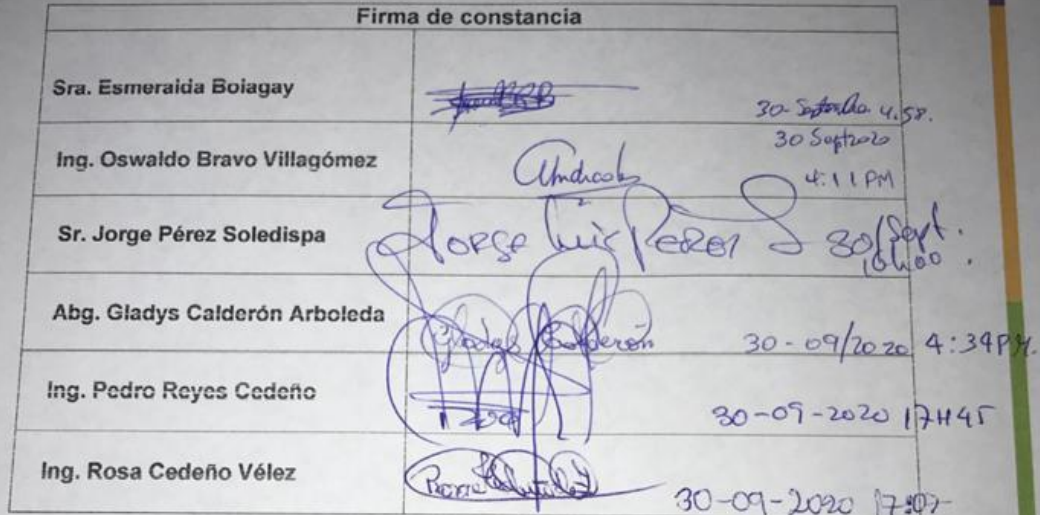 Firma de constancia
Sra. Esmeralda Bolagay
30-Septiembre 4:58.
30 Sept 2020
Ing. Oswaldo Bravo Villagómez
4:11 PM
Sr. Jorge Pérez Soledispa
Jorge Luis Perez S 30/Sept.
16h00.
Abg. Gladys Calderón Arboleda
Gladys Calderón 30-09/2020 4:34PM.
Ing. Pedro Reyes Cedeño
30-09-2020 17H45
Ing. Rosa Cedeño Vélez
30-09-2020 17:07